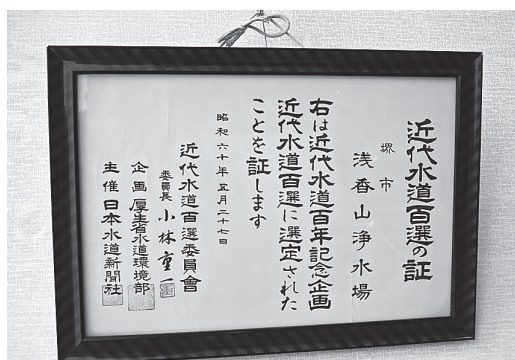 近代水道百選の証
堺市
浅香山浄水場
右は近代水道百年記念企画
近代水道百選に選定された
ことを証します
昭和六十年五月二十七日
近代水道百選委員會
委員長 小林重一
企画 厚生省水道環境部
主催 日本水道新聞社